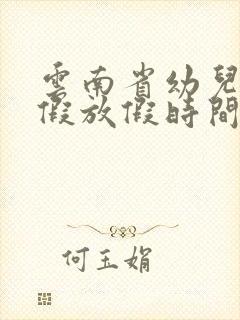 雲南省幼兒
假放假時間
何玉娟